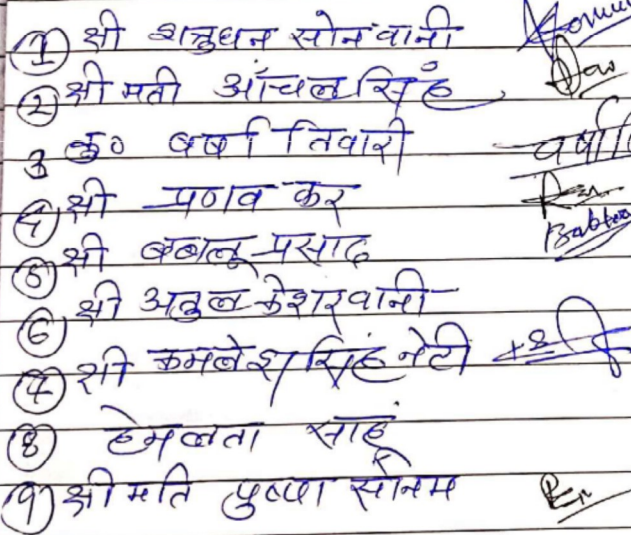 ① श्री शत्रुघन सोनवानी
② श्री मती आँचल सिंह
3 कु० वर्षा तिवारी वर्षा
④ श्री प्रणव कर
⑤ श्री बबलू प्रसाद
⑥ श्री अतुल केशरवानी
⑦ श्री कमलेश सिंह नेटी
⑧ हेमलता साहू
⑨ श्री मति पुष्पा सोनम